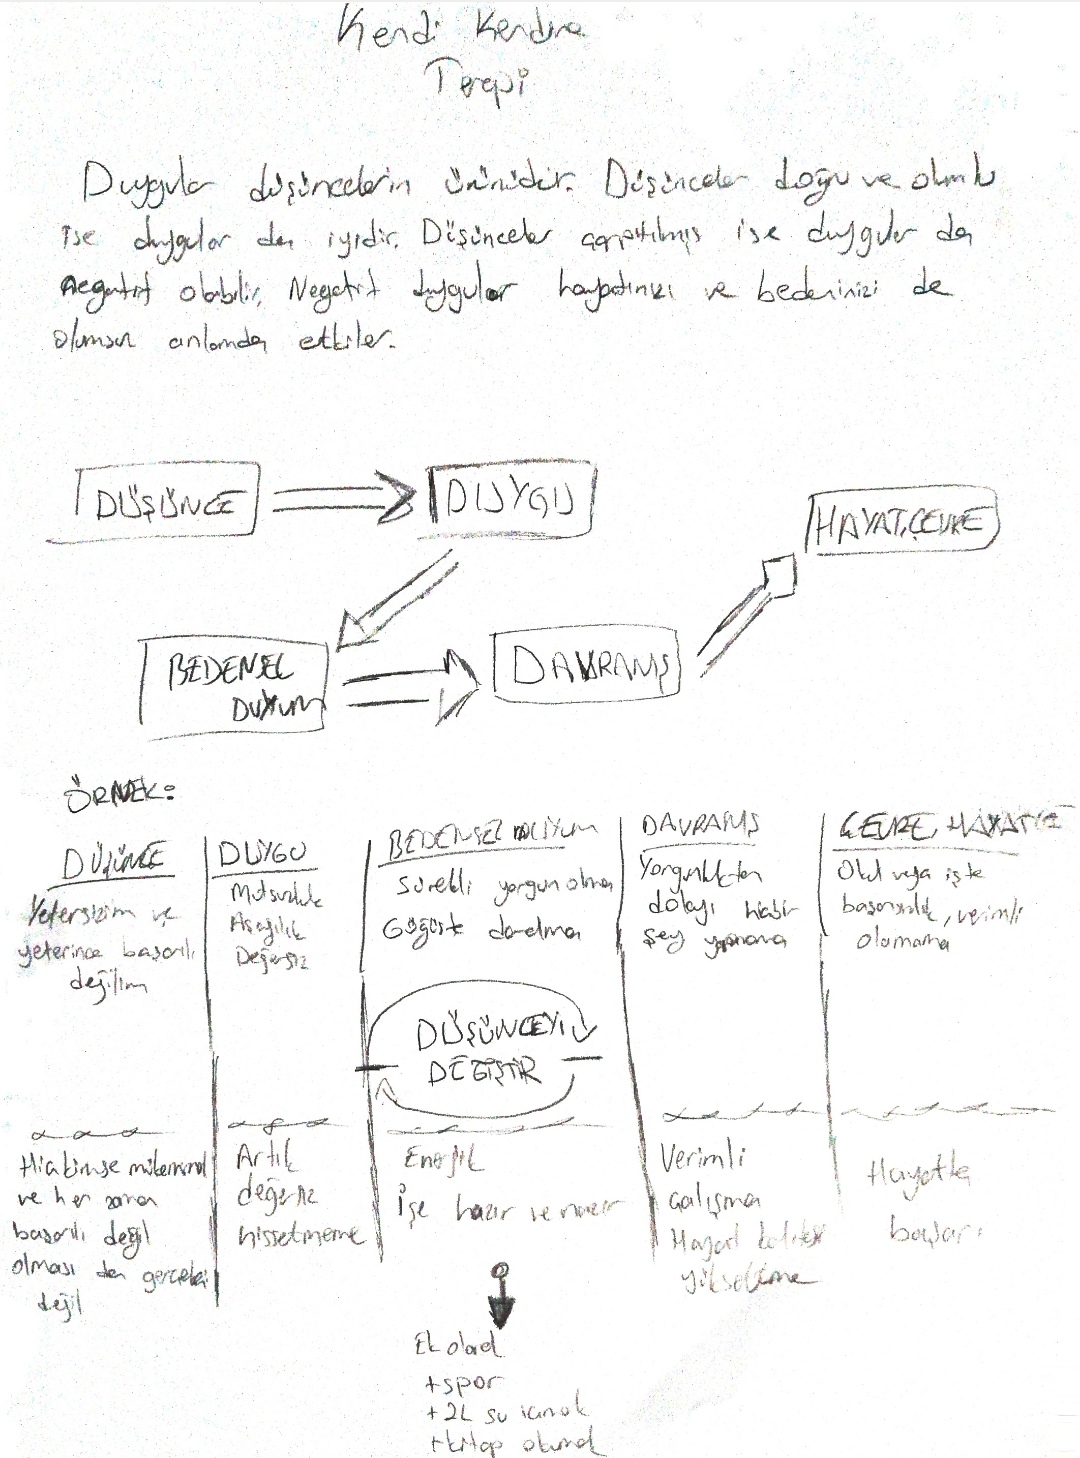 Kendi Kendine
Terapi
Duygular düşüncelerin ürünüdür. Düşünceler doğru ve olumlu
ise duygular da iyidir. Düşünceler çarpıtılmış ise duygular da
negatif olabilir. Negatif duygular hayatınızı ve bedeninizi de
olumsuz anlamda etkiler.
DÜŞÜNCE
DUYGU
HAYAT,ÇEVRE
BEDENSEL
DUYUM
DAVRANIŞ
ÖRNEK:
DÜŞÜNCE
Yetersizim ve
yeterince başarılı
değilim
DUYGU
Mutsuzluk
Aşağılık
Değersiz
BEDENSEL DUYUM
Sürekli yorgun olma
Göğüste daralma
DAVRANIŞ
Yorgunluktan
dolayı hiçbir
şey yapmama
ÇEVRE, HAYAT
Okul veya işte
başarısızlık, verimli
olamama
DÜŞÜNCEYİ
DEĞİŞTİR
Hiç kimse mükemmel
ve her zaman
başarılı değil
olması da gerçekçi
değil
Artık
değersiz
hissetmeme
Enerjik
İşe hazır ve
Verimli
çalışma
Hayat kalitesi
yükselme
Hayatta
başarı
Ek olarak
+spor
+2L su içmek
+kitap okumak